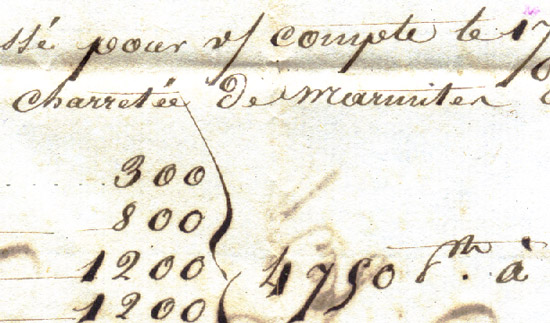 ssé pour v/ compte le 17
charretée de Marmites
300
800
1200
1200
4750 à